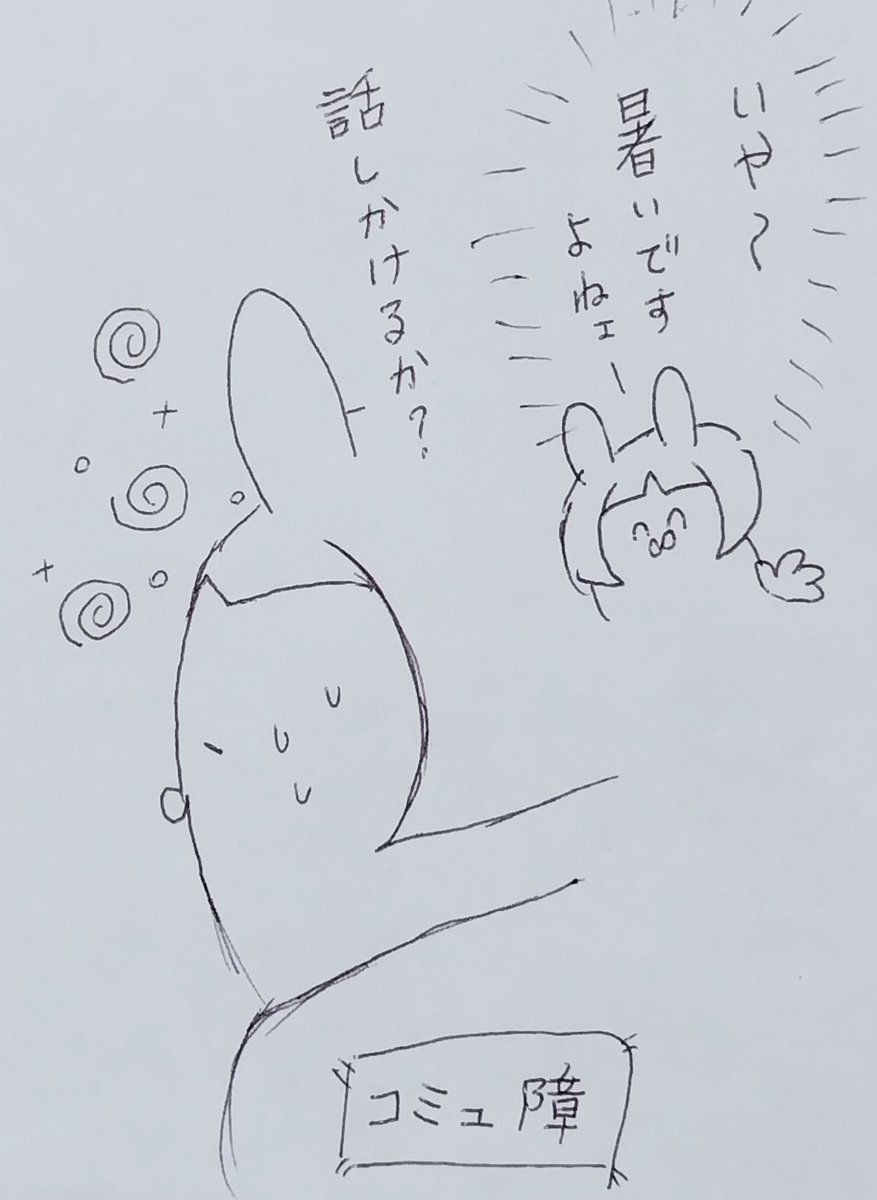 いや〜
暑いです
よねェー
話しかけるか?
コミュ障